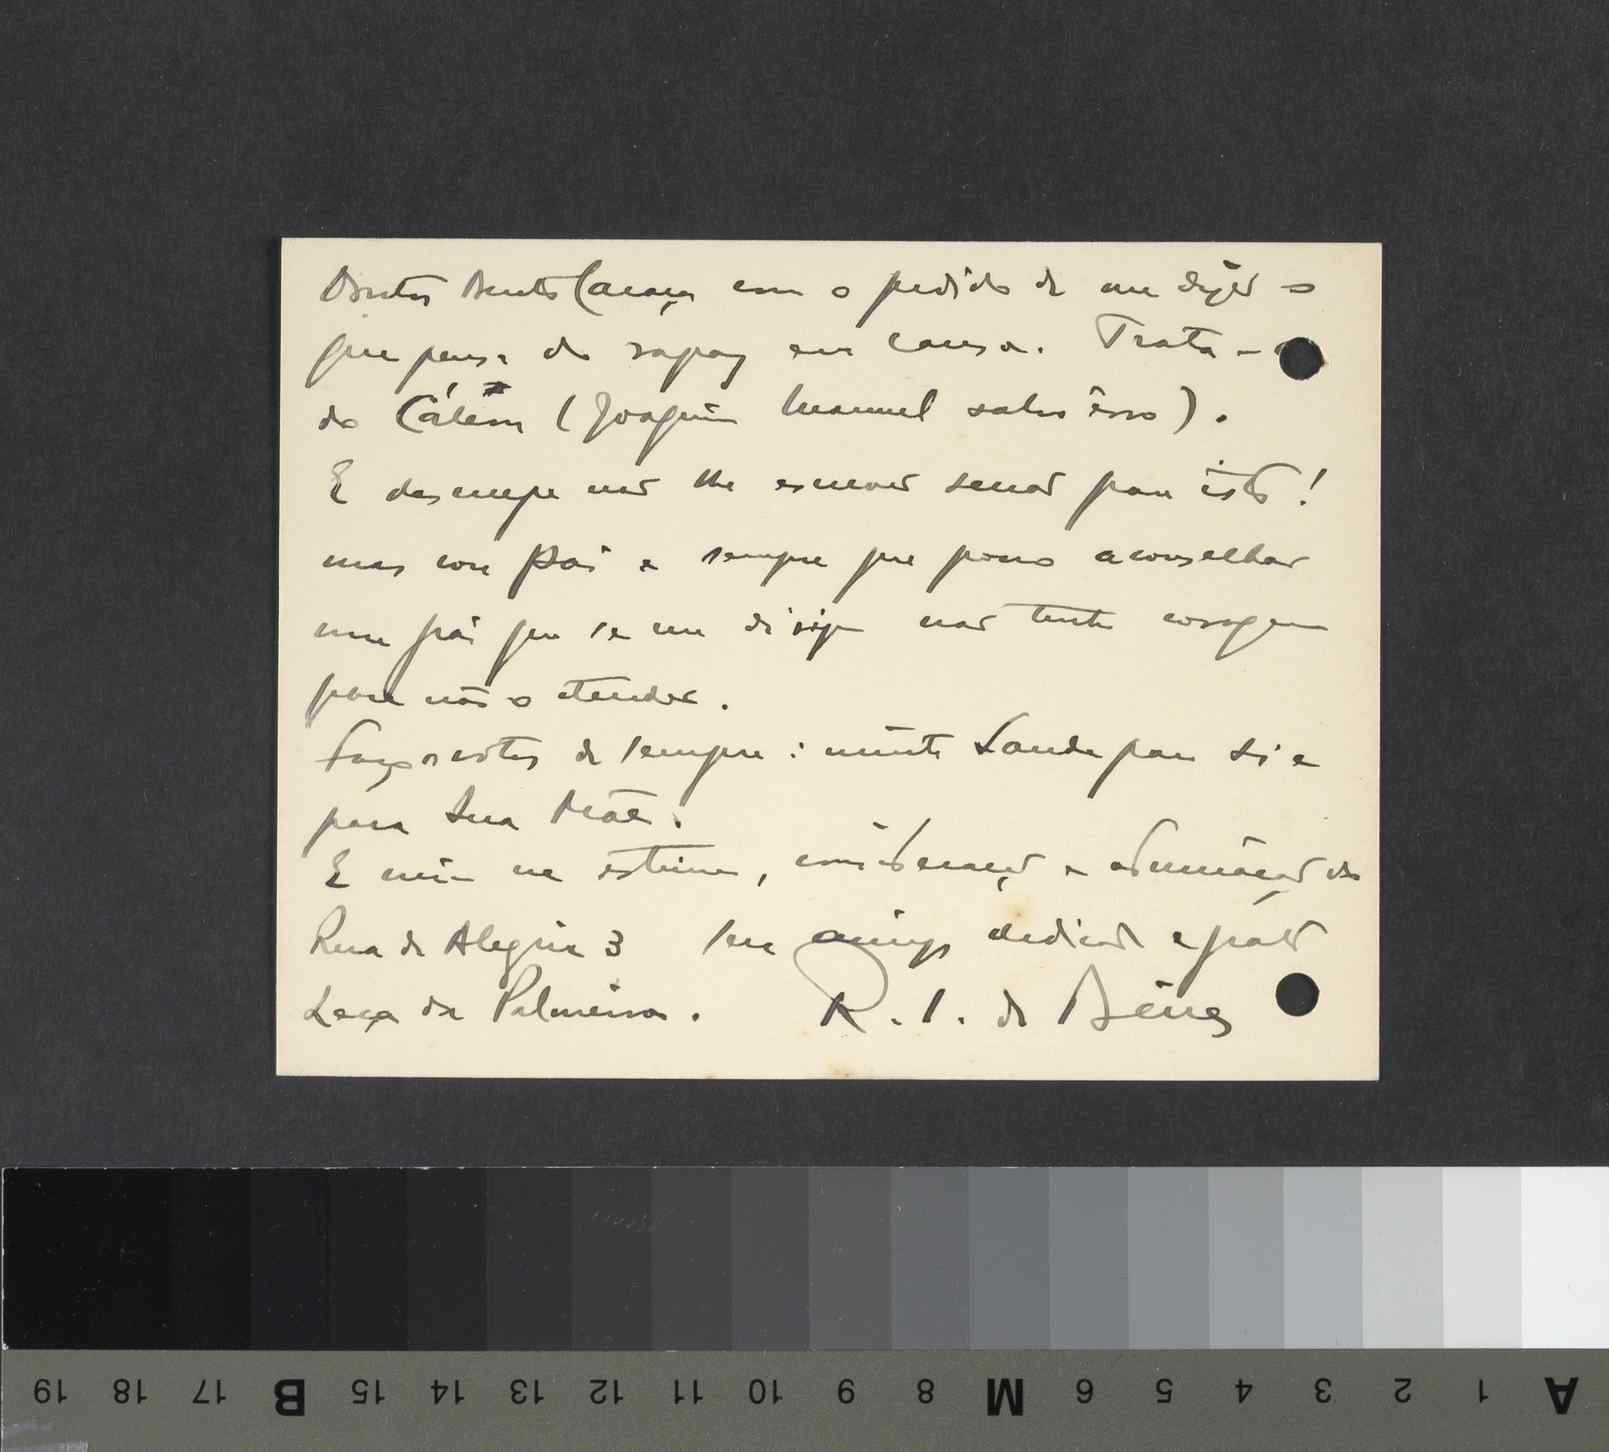 Doutor Bento Caraça com o pedido de me dizer o
que pensa do rapaz em causa. Trata-
do Cálem (Joaquim Manuel salvo êrro).
E desculpe não lhe escrever senão para isto!
mas sou Pai e sempre que posso aconselhar
um pai que se me dirige não tenho coragem
para não o atender.
Faço votos de sempre: muita Saude para Si e
para Sua Mãe.
E creia na estima, consideração e admiração do
Rua da Alegria 3 seu amigo dedicado e grato
Leça da Palmeira. R. S. de
19 18 17 B 15 14 13 12 11 10 9 8 M 6 5 4 3 2 1 A